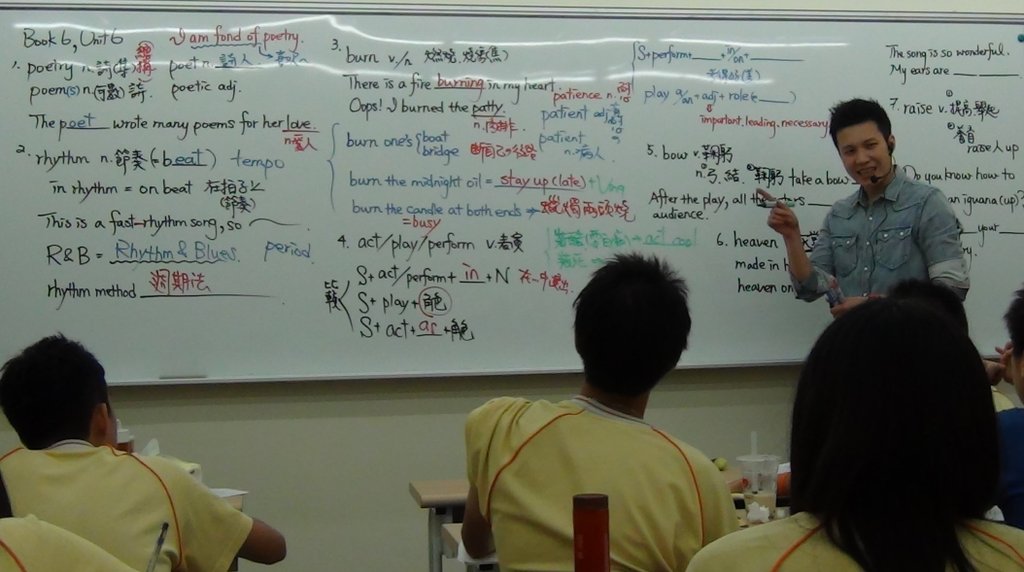 Book 6, Unit 6 I am fond of poetry.
1. poetry n. 詩(集) poet n. 詩人
poem(s) n.(可數) 詩 poetic adj.
The poet wrote many poems for her love.
n. 愛人
2. rhythm n. 節奏 (=beat) tempo
in rhythm = on beat 在拍子上
(節奏)
This is a fast-rhythm song, so
R&B = Rhythm & Blues period
rhythm method 週期法
3. burn v/n 燃燒, 燒(焦)
There is a fire burning in my heart.
Oops! I burned the patty.
n. 肉排
patience n.
patient adj.
patient
n. 病人
burn one's boat
bridge
burn the midnight oil = stay up (late) + Ving
burn the candle at both ends ⇒ 蠟燭兩頭燒
=busy
4. act/play/perform v. 表演
S+ act/perform + in + N
S+ play + 角色
S+ act + as + 角色
act cool
S+ perform+ in/on+
play a/an + adj + role
important, leading, necessary
5. bow v. 鞠躬
n. 弓, 結 鞠躬 take a bow
After the play, all the
audience.
6. heaven
made in h
heaven on
The song is so wonderful.
My ears are
7. raise v. 提高, 舉起
養育
raise 人 up
Do you know how to
an iguana (up)
your